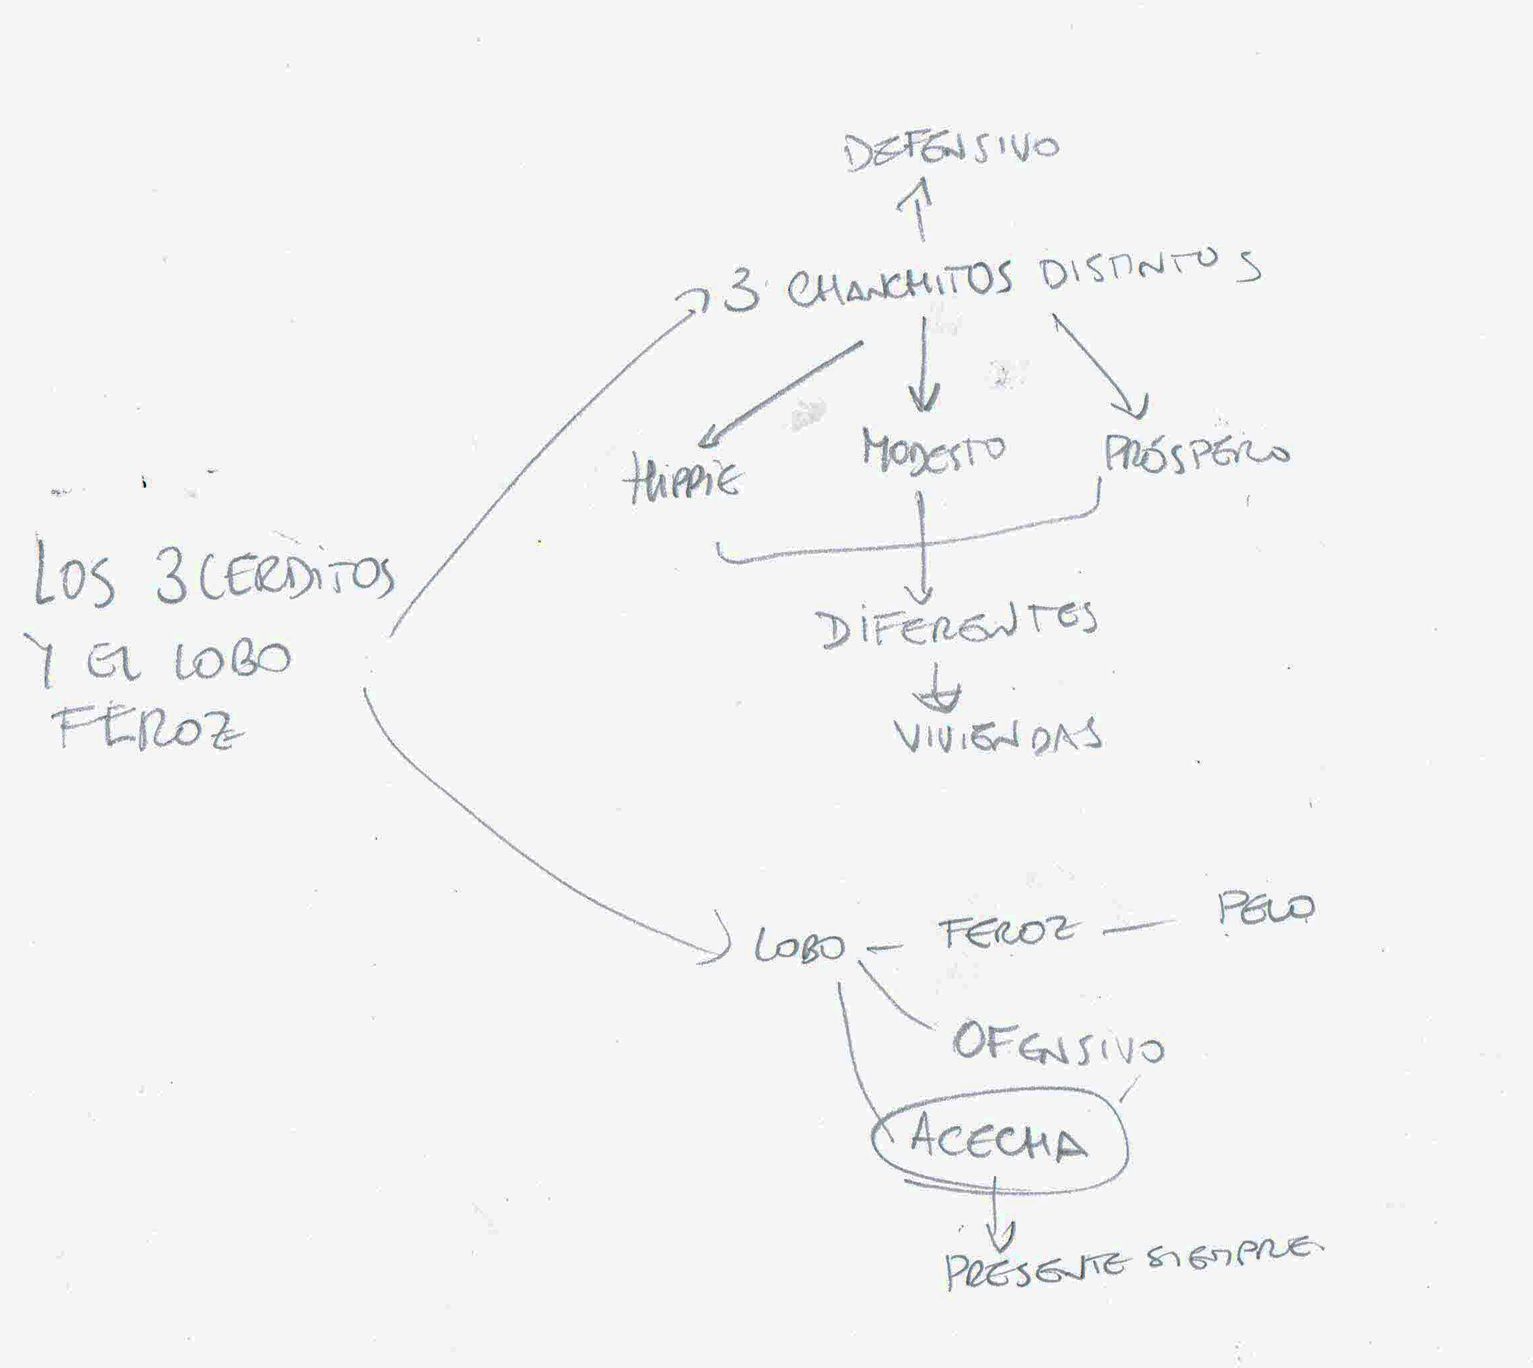 DEFENSIVO
3 CHANCHITOS DISTINTOS
HIPPIE
MODESTO
PRÓSPERO
LOS 3 CERDITOS
Y EL LOBO
FEROZ
DIFERENTES
VIVIENDAS
LOBO - FEROZ — PELO
OFENSIVO
ACECHA
PRESENTE SIEMPRE